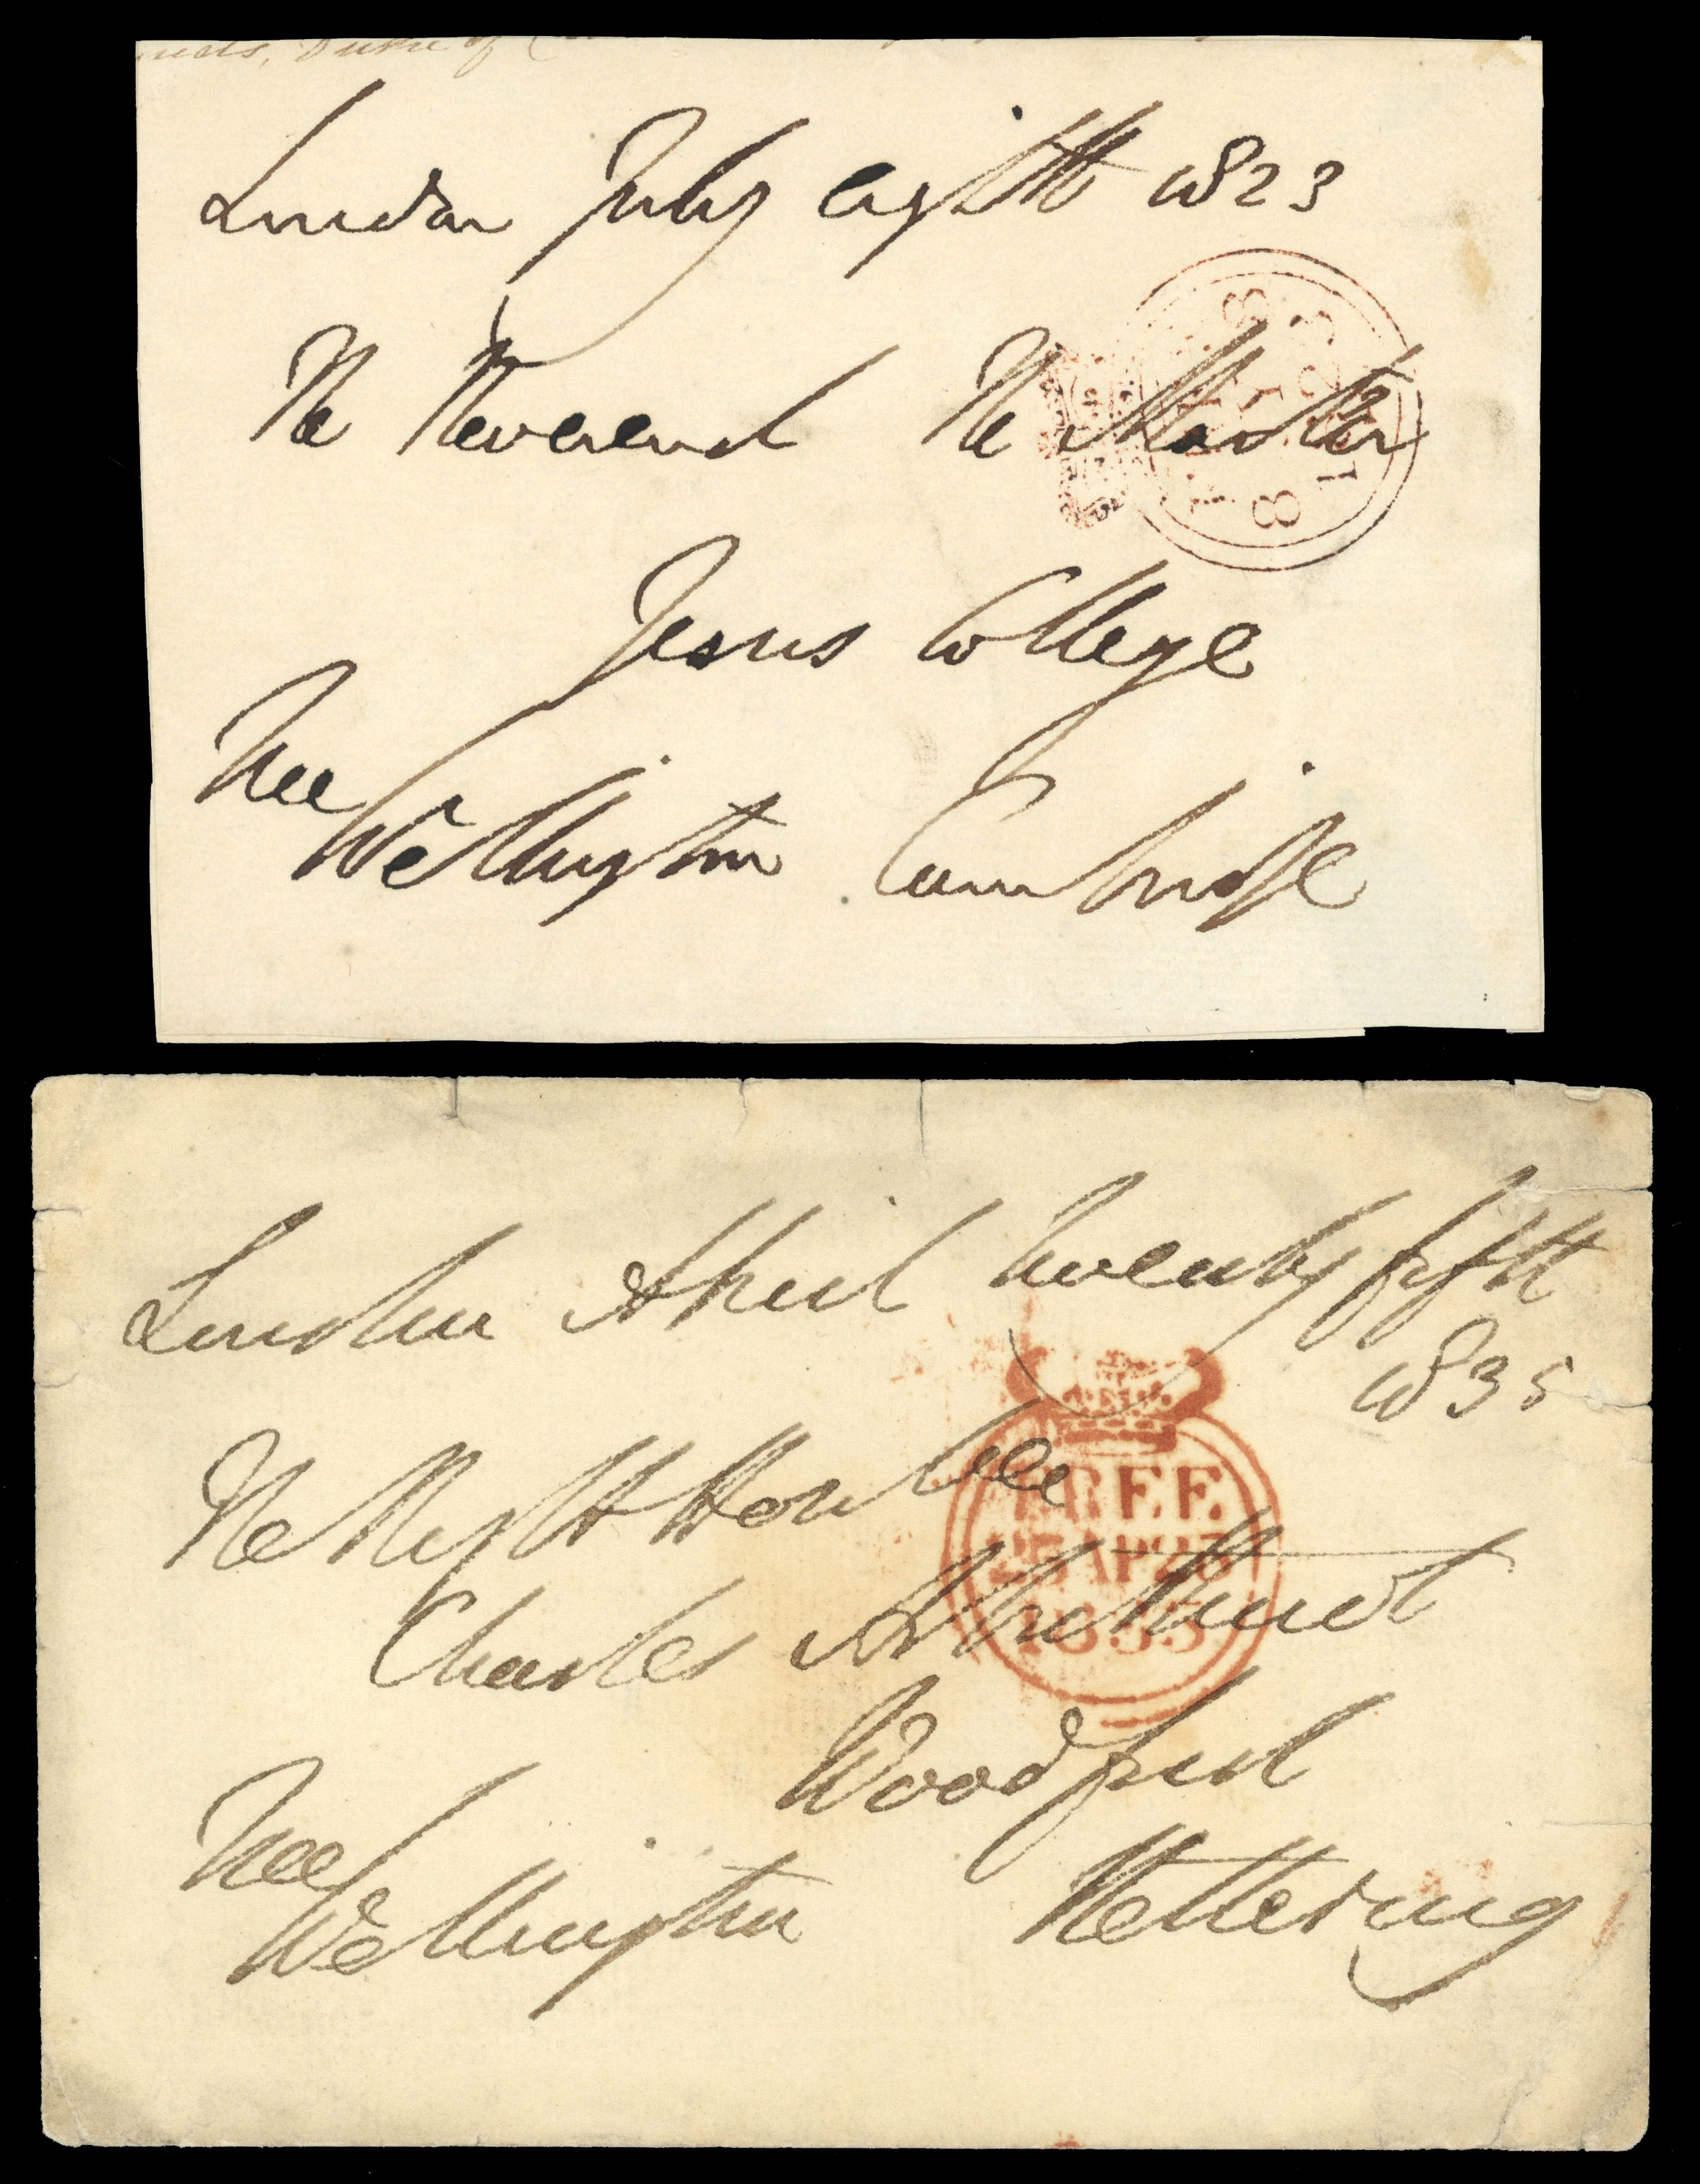 Duke of
London July eighth 1823
The Reverend The Master
Jesus College
Free
Wellington Cambridge
8 JY 8
1823
London April twenty fifth
1835
The Right Honble
Charles Arbuthnot
Woodford
Free
Wellington Kettering
FREE
25 AP 25
1835